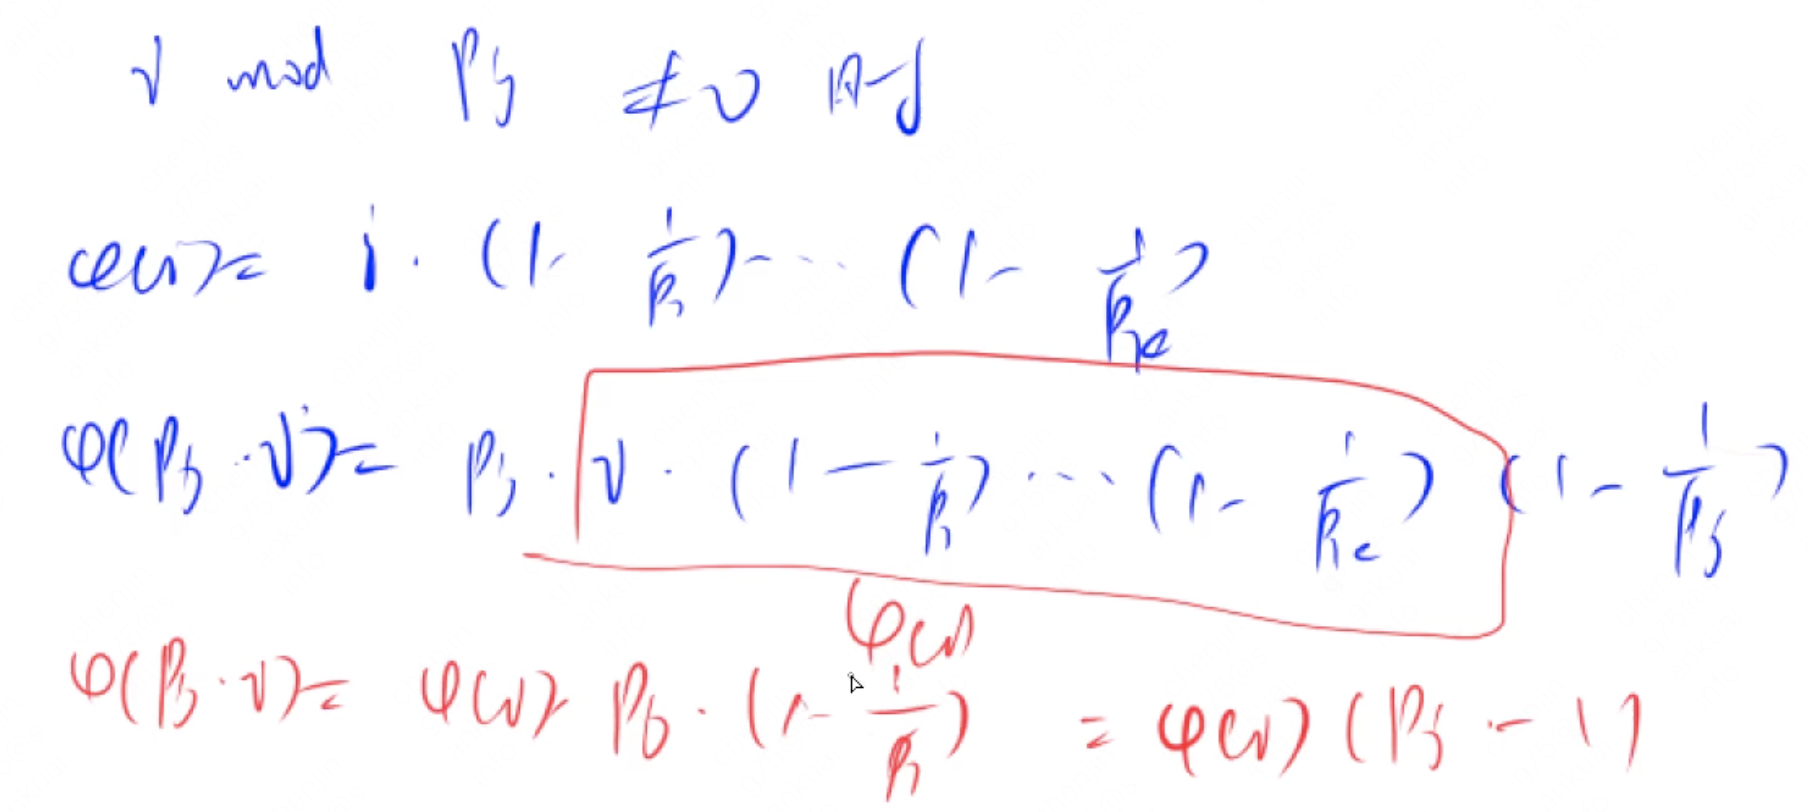 i mod Pj ≠ 0 时
φ(i) = i · (1 - 1/P1) ··· (1 - 1/Pk)
φ(Pj · i) = Pj · i · (1 - 1/P1) ··· (1 - 1/Pk) (1 - 1/Pj)
φ(i)
φ(Pj · i) = φ(i) Pj · (1 - 1/Pj) = φ(i) (Pj - 1)